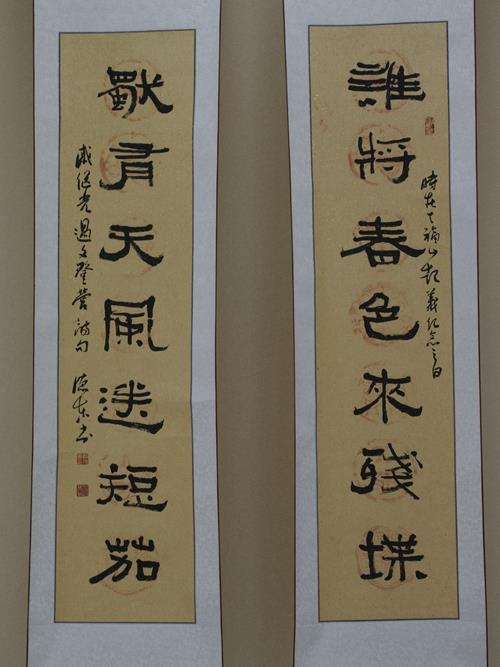 誰將春色來殘堞
時在天福山起義紀念之日
獨有天風送短茄
戚继光過文登營詩句